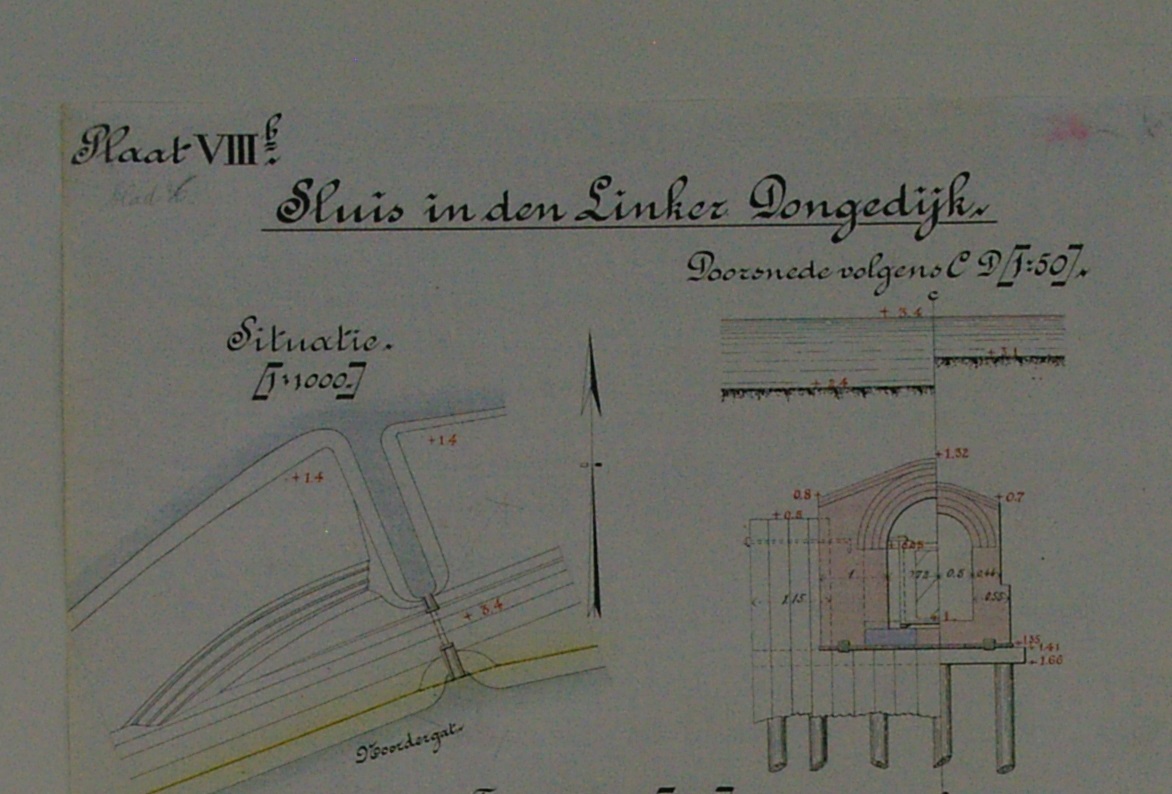 Plaat VIII b.
blad
Sluis in den Linker Dongedijk.
Doorsnede volgens C D [1:50].
C
+ 3.4
+ 3.1
+ 2.4
Situatie.
[1:1000.]
+ 1.4
+ 1.4
+ 3.4
Noordergat.
+ 1.52
0.8
+ 0.7
+ 0.5
1
0.5
0.44
1.15
0.55
+ 1.
1.35
1.41
- 1.66